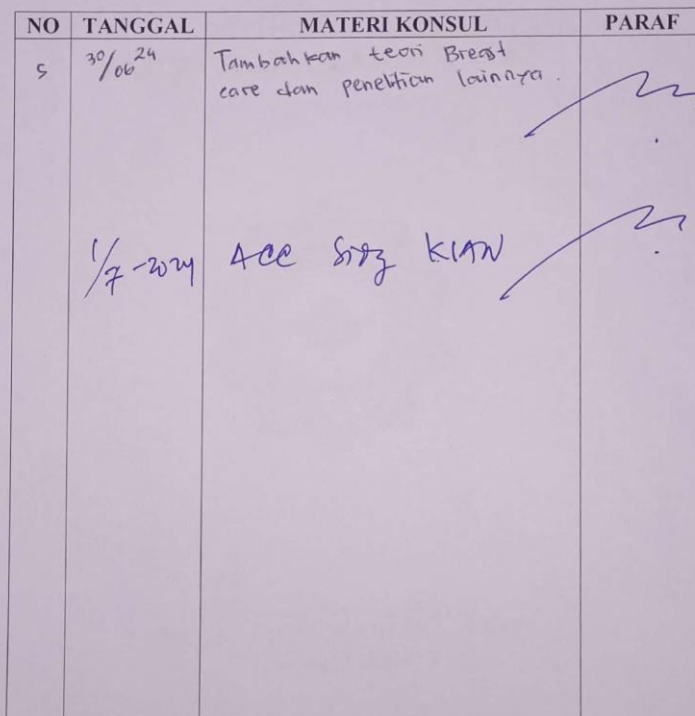 NO TANGGAL MATERI KONSUL PARAF
5 30/06 24 Tambahkan teori Breast
care dan penelitian lainnya.
1/7-2024 ACC KIAN